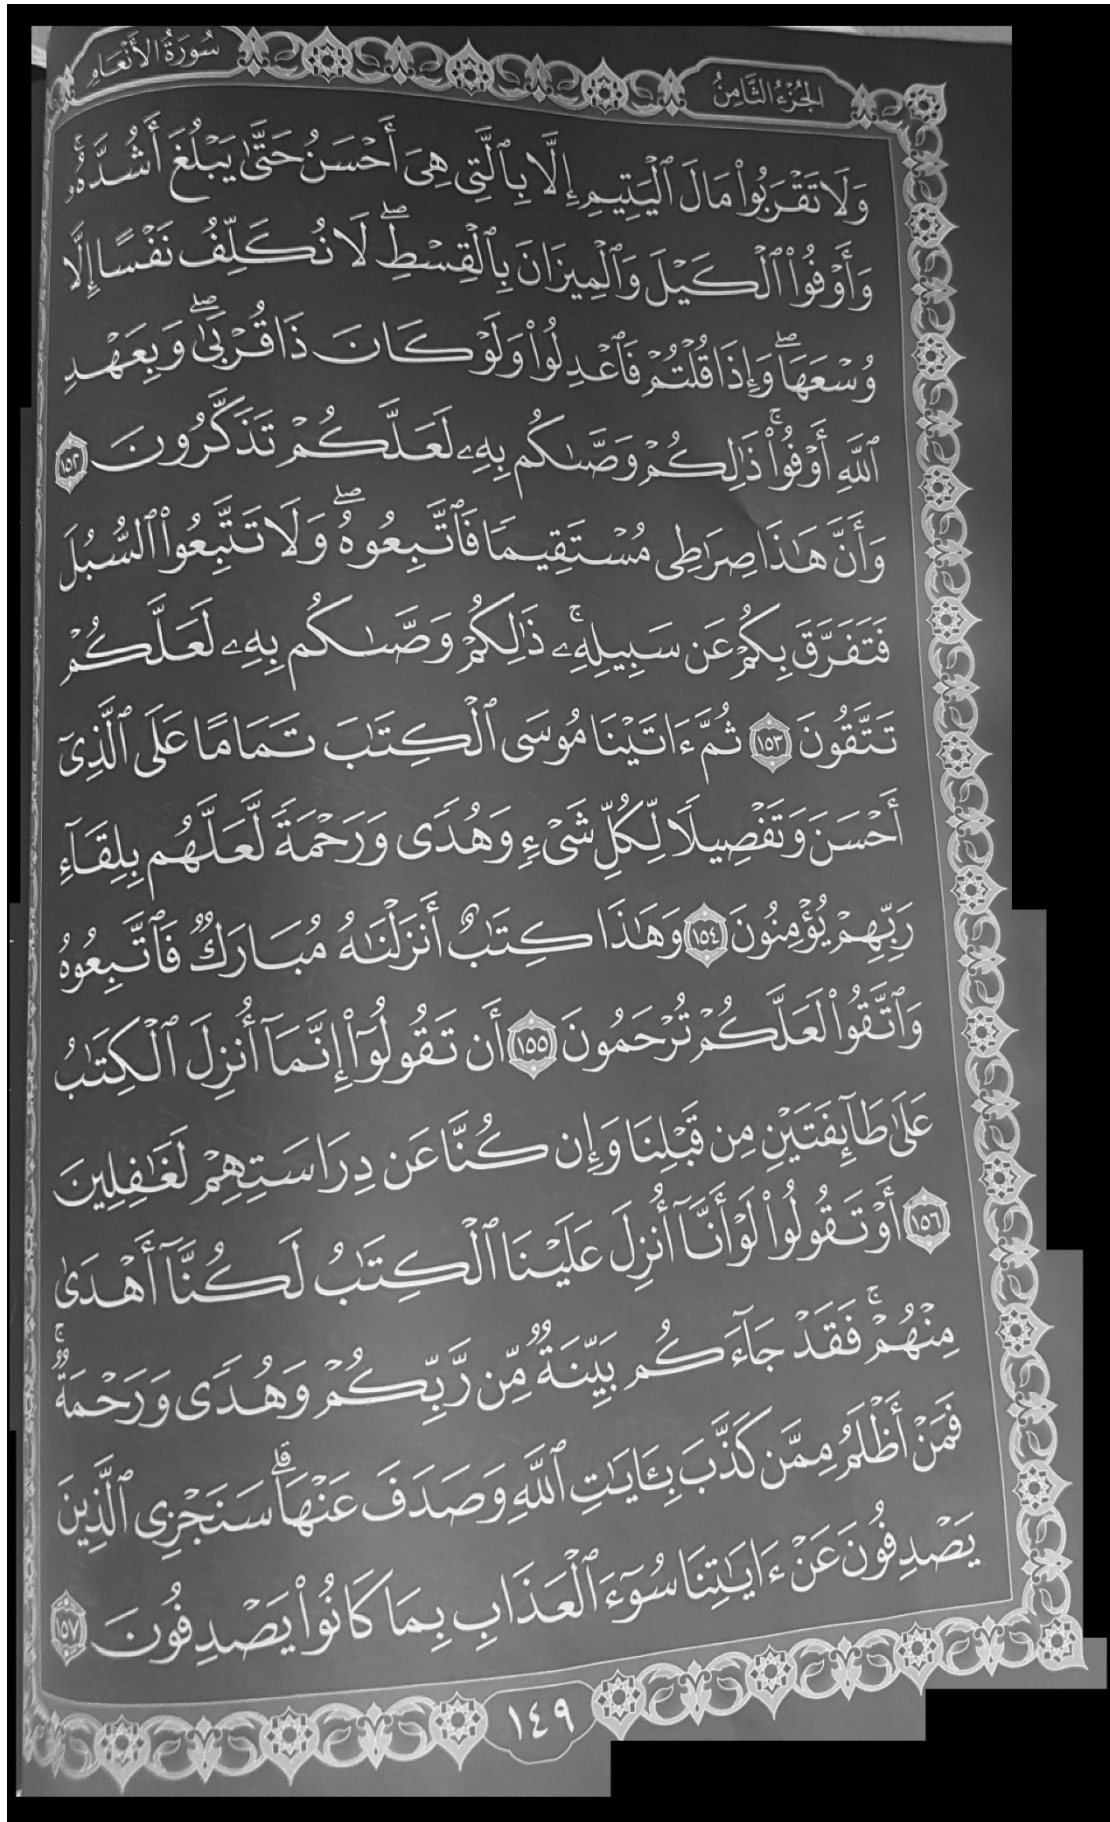 سُورَةُ الأَنْعَامِ
الجُزْءُ الثَّامِنُ
وَلَا تَقْرَبُوا۟ مَالَ ٱلْيَتِيمِ إِلَّا بِٱلَّتِى هِىَ أَحْسَنُ حَتَّىٰ يَبْلُغَ أَشُدَّهُۥۚ
وَأَوْفُوا۟ ٱلْكَيْلَ وَٱلْمِيزَانَ بِٱلْقِسْطِۖ لَا نُكَلِّفُ نَفْسًا إِلَّا
وُسْعَهَاۖ وَإِذَا قُلْتُمْ فَٱعْدِلُوا۟ وَلَوْ كَانَ ذَا قُرْبَىٰۖ وَبِعَهْدِ
ٱللَّهِ أَوْفُوا۟ۚ ذَٰلِكُمْ وَصَّىٰكُم بِهِۦ لَعَلَّكُمْ تَذَكَّرُونَ ١٥٢
وَأَنَّ هَـٰذَا صِرَٰطِى مُسْتَقِيمًا فَٱتَّبِعُوهُۖ وَلَا تَتَّبِعُوا۟ ٱلسُّبُلَ
فَتَفَرَّقَ بِكُمْ عَن سَبِيلِهِۦۚ ذَٰلِكُمْ وَصَّىٰكُم بِهِۦ لَعَلَّكُمْ
تَتَّقُونَ ١٥٣ ثُمَّ ءَاتَيْنَا مُوسَى ٱلْكِتَـٰبَ تَمَامًا عَلَى ٱلَّذِىٓ
أَحْسَنَ وَتَفْصِيلًا لِّكُلِّ شَىْءٍ وَهُدًى وَرَحْمَةً لَّعَلَّهُم بِلِقَآءِ
رَبِّهِمْ يُؤْمِنُونَ ١٥٤ وَهَـٰذَا كِتَـٰبٌ أَنزَلْنَـٰهُ مُبَارَكٌ فَٱتَّبِعُوهُ
وَٱتَّقُوا۟ لَعَلَّكُمْ تُرْحَمُونَ ١٥٥ أَن تَقُولُوٓا۟ إِنَّمَآ أُنزِلَ ٱلْكِتَـٰبُ
عَلَىٰ طَآئِفَتَيْنِ مِن قَبْلِنَا وَإِن كُنَّا عَن دِرَاسَتِهِمْ لَغَـٰفِلِينَ
١٥٦ أَوْ تَقُولُوا۟ لَوْ أَنَّآ أُنزِلَ عَلَيْنَا ٱلْكِتَـٰبُ لَكُنَّآ أَهْدَىٰ
مِنْهُمْۚ فَقَدْ جَآءَكُم بَيِّنَةٌ مِّن رَّبِّكُمْ وَهُدًى وَرَحْمَةٌۚ
فَمَنْ أَظْلَمُ مِمَّن كَذَّبَ بِـَٔايَـٰتِ ٱللَّهِ وَصَدَفَ عَنْهَاۗ سَنَجْزِى ٱلَّذِينَ
يَصْدِفُونَ عَنْ ءَايَـٰتِنَا سُوٓءَ ٱلْعَذَابِ بِمَا كَانُوا۟ يَصْدِفُونَ ١٥٧
١٤٩